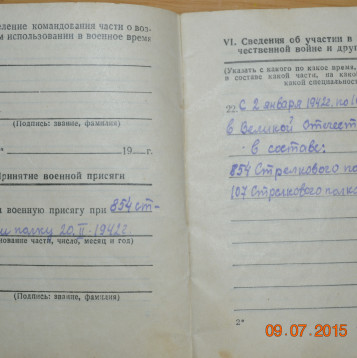 еление командования части о воз-
м использовании в военное время
(Подпись: звание, фамилия)
" 19 г.
Принятие военной присяги
л военную присягу при 854 ст-
полку 20.II-1942г.
нование части, число, месяц и год)
(Подпись: звание, фамилия)
VI. Сведения об участии в
чественной войне и друг
(Указать с какого по какое время,
в составе какой части, на как
какой специальнос
22. С 2 января 1942г. по
в Великой Отечест
в составе:
854 Стрелкового по
107 Стрелкового полк
2*
09.07.2015